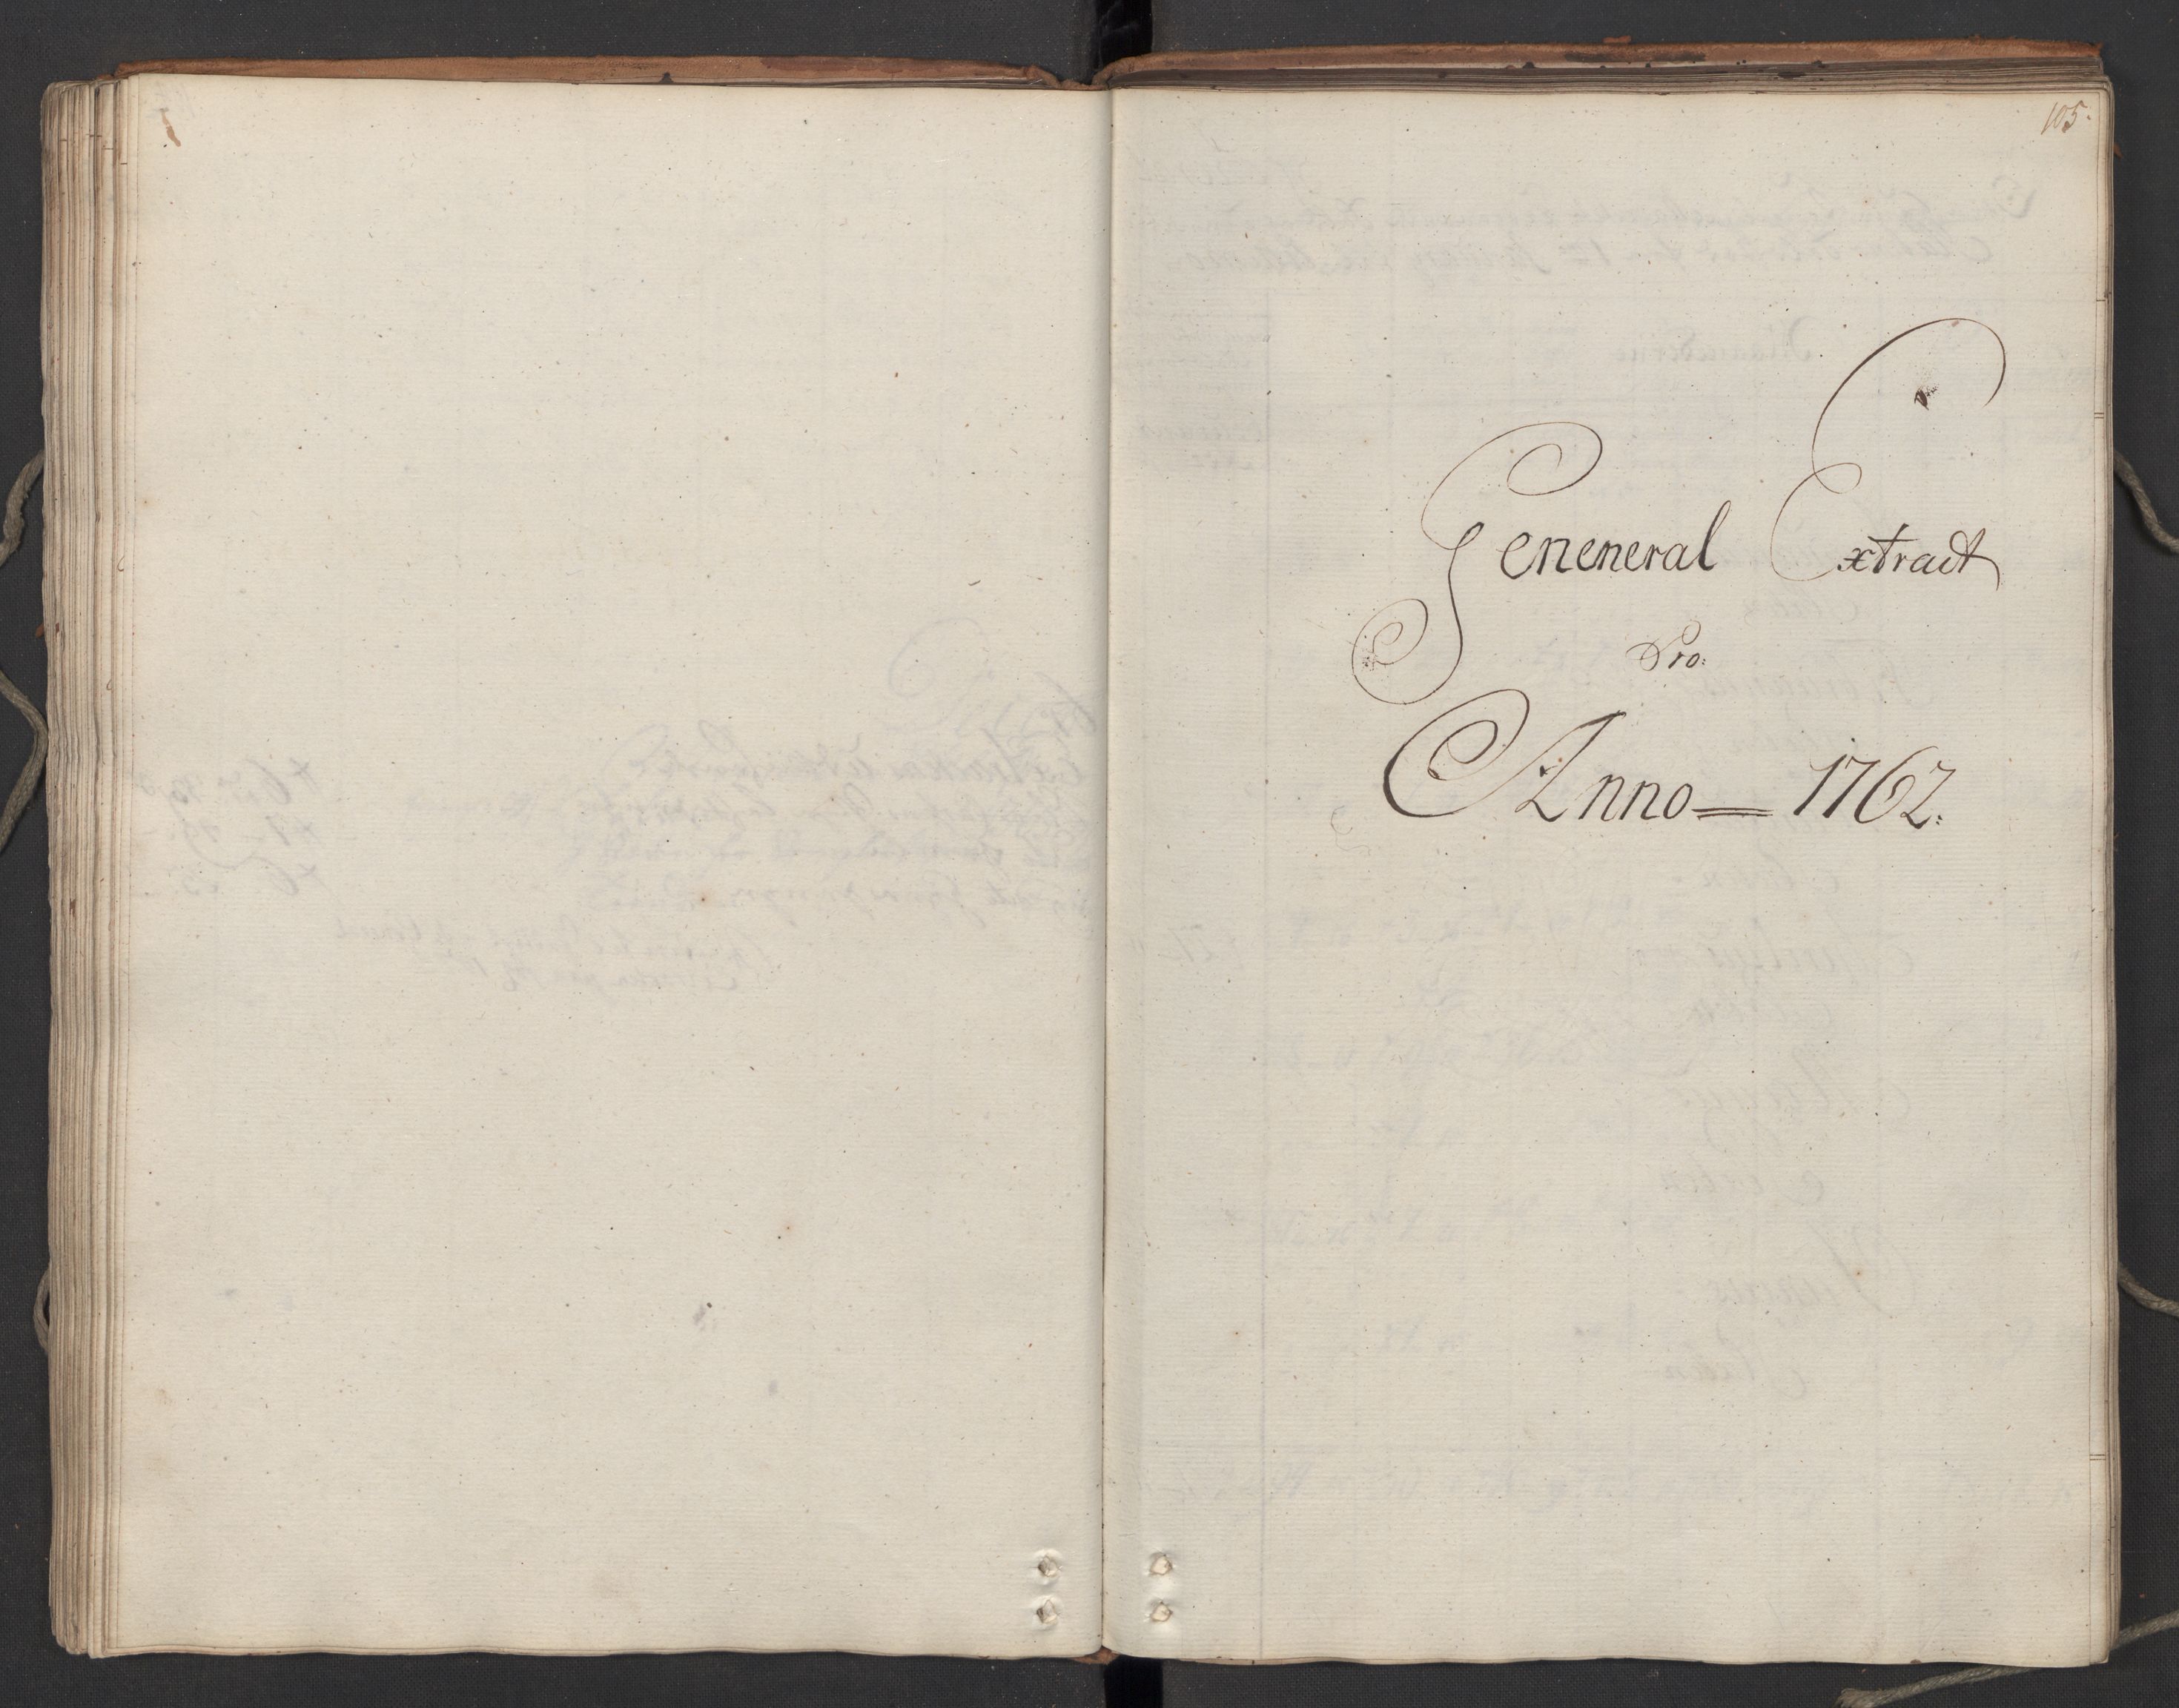 105.
Geneneral Extract
Pro:
Anno = 1762: